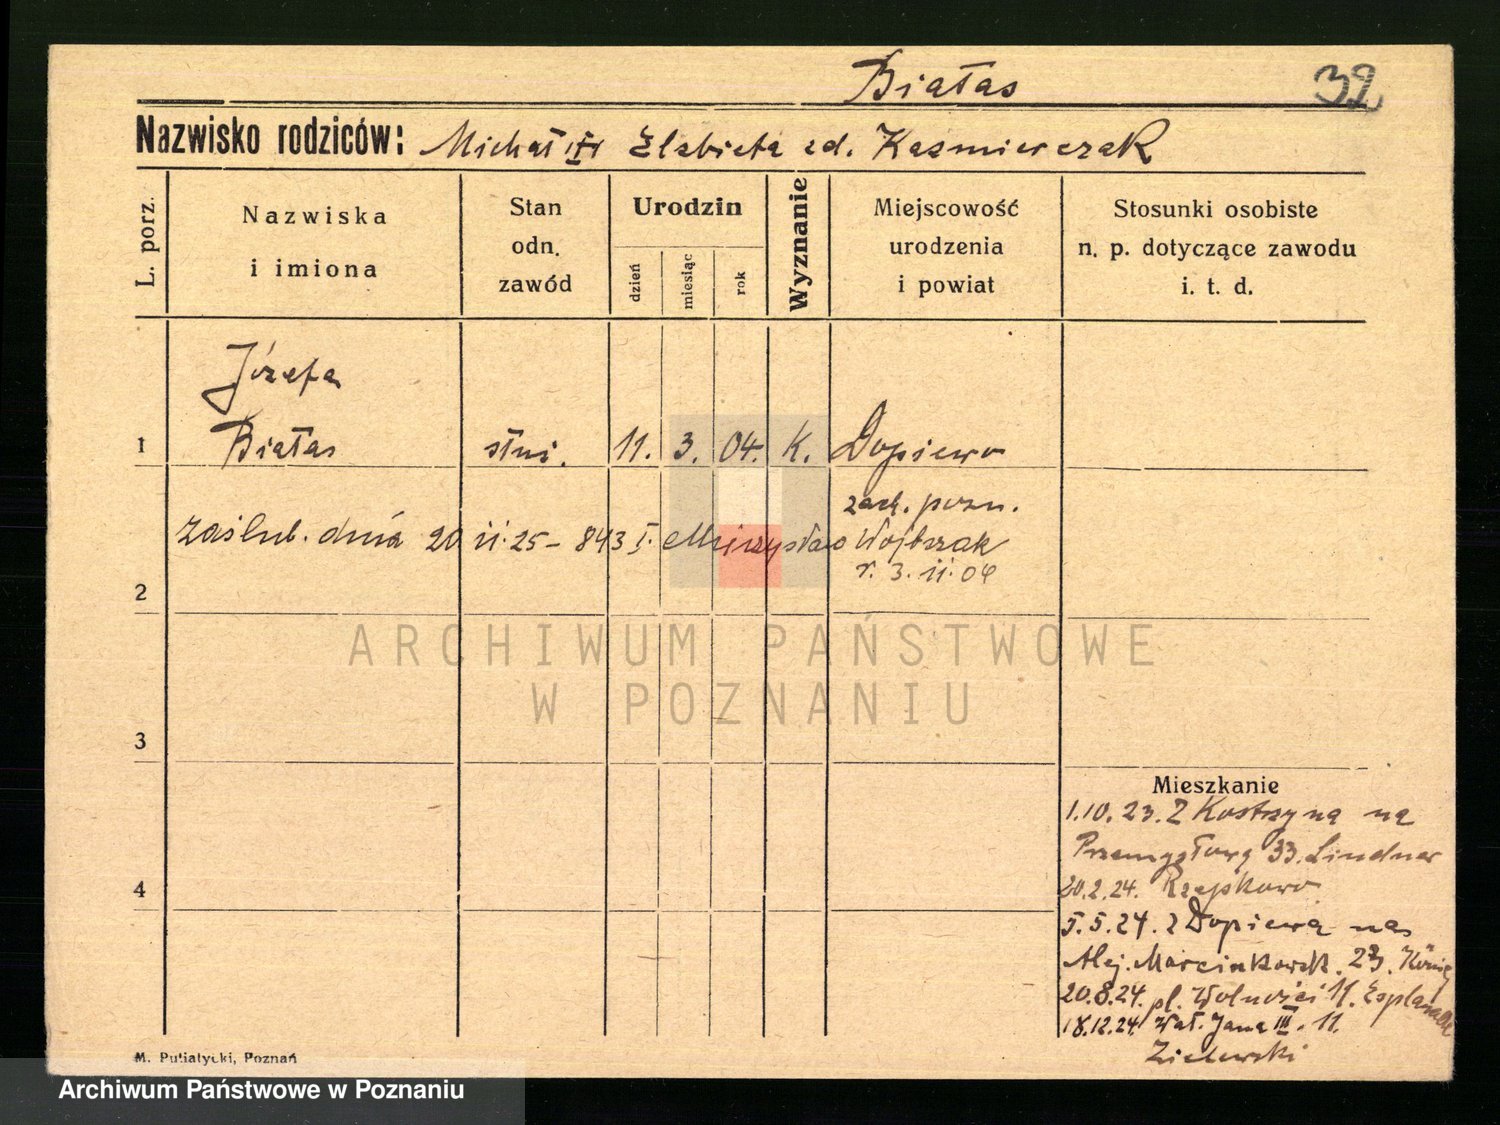 Białas
32
Nazwisko rodziców: Michał i Elzbieta zd. Kaźmierczak
L. porz.
Nazwiska
i imiona
Stan
odn.
zawód
Urodzin
dzień
miesiąc
rok
Wyznanie
Miejscowość
urodzenia
i powiat
Stosunki osobiste
n. p. dotyczące zawodu
i. t. d.
Józefa
1 Białas służ. 11. 3. 04. K. Dopiewo
zach. pozn.
zaślub. dnia 20 11. 25 - 843 I. Mieczysław Wojtczak
r. 3. 11. 04
2
3
4
Mieszkanie
1.10.23. z Kostrzyna na
Przemysłową 33. Lindner
20.2.24. Rzepkowo
5.5.24. z Dopiewa na
Alej. Marcinkowsk. 23. König
20.8.24. pl. Wolności 11. Esplanade
18.12.24. Wał. Jana III. 11.
Zielewski
M. Putiatycki, Poznań
ARCHIWUM PAŃSTWOWE
W POZNANIU
Archiwum Państwowe w Poznaniu